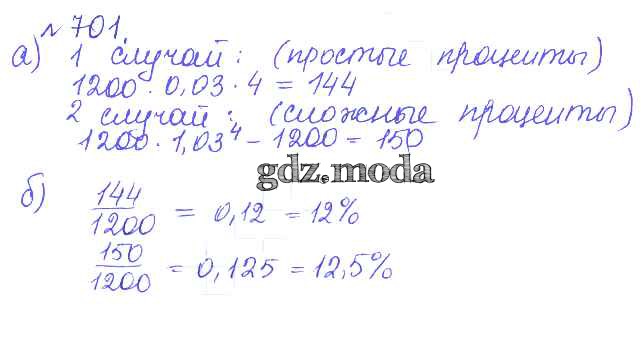 № 701.
а) 1 случай: (простые проценты)
1200 · 0,03 · 4 = 144
2 случай: (сложные проценты)
1200 · 1,03⁴ − 1200 = 150
gdz.moda
б) 144/1200 = 0,12 = 12%
150/1200 = 0,125 = 12,5%